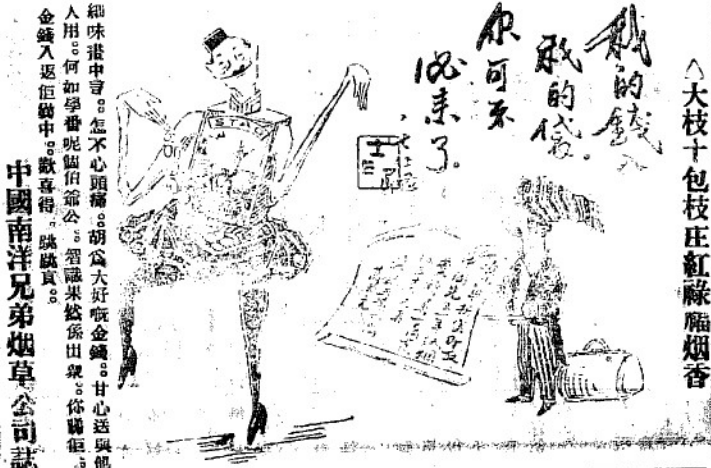 大枝十包枝庄紅祿福烟香
我的錢入
我的袋。
你可不
必来了。
細味畫中言。。怎不心頭痛。。胡為大好嘅金錢。。甘心送與他
人用。。何如學番呢個伯爺公。。智識果然係出眾。。你睇佢。
金錢入返佢袋中。。歡喜得。跳跳貢。。
中國南洋兄弟烟草公司誌